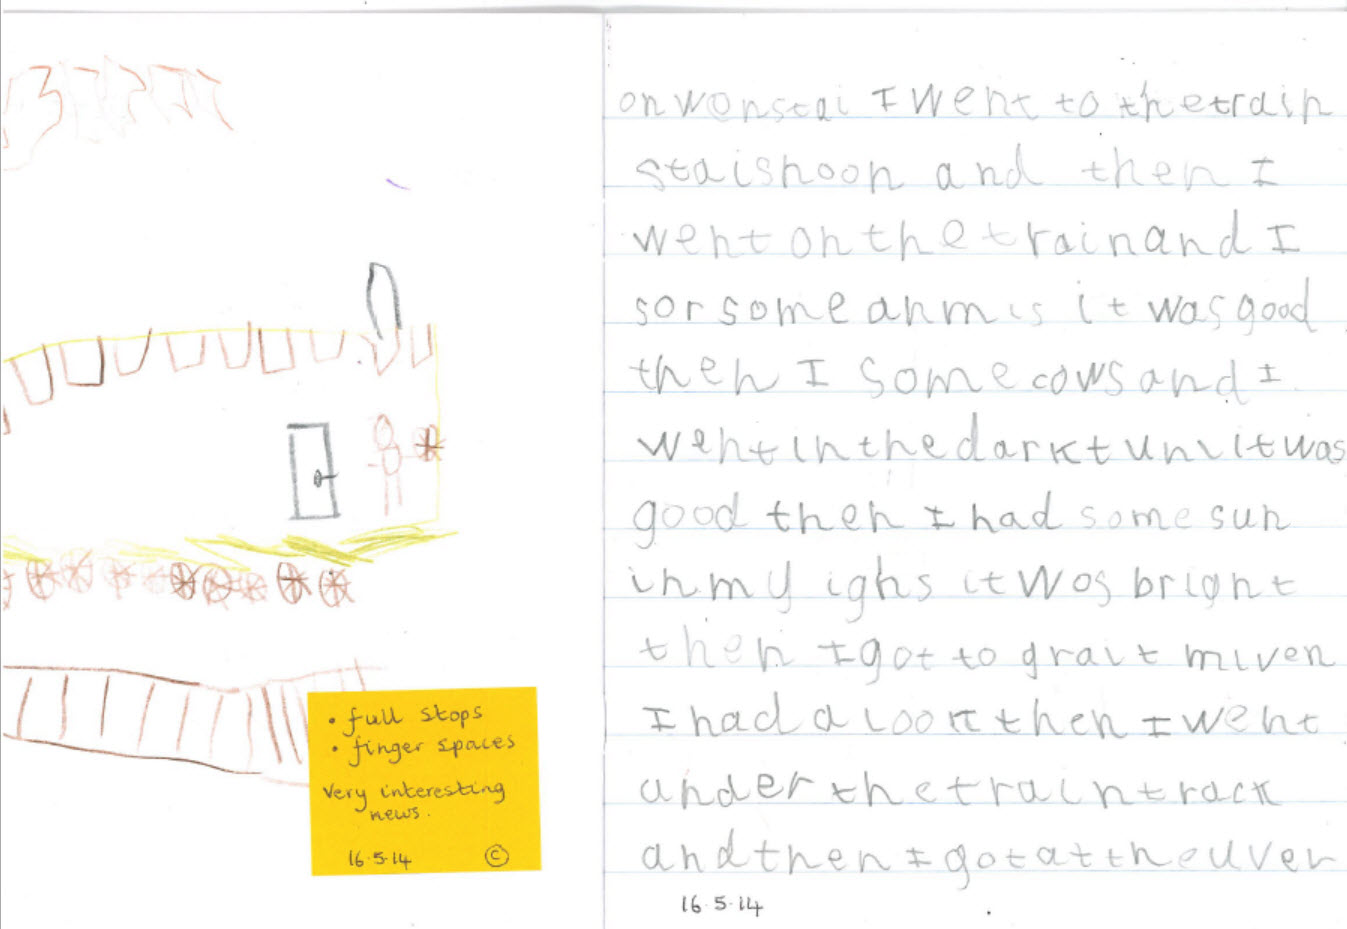 • full stops
• finger spaces
very interesting
news.
16.5.14 ©
on wonstai I went to thetrain
staishoon and then I
went on the train and I
sor some anmis it was good
then I some cows and I
went in the dark tunl it was
good then I had some sun
in my ighs it wos bright
then I got to grait miven
I had a look then I went
under the train track
and then I got at the uver
16.5.14